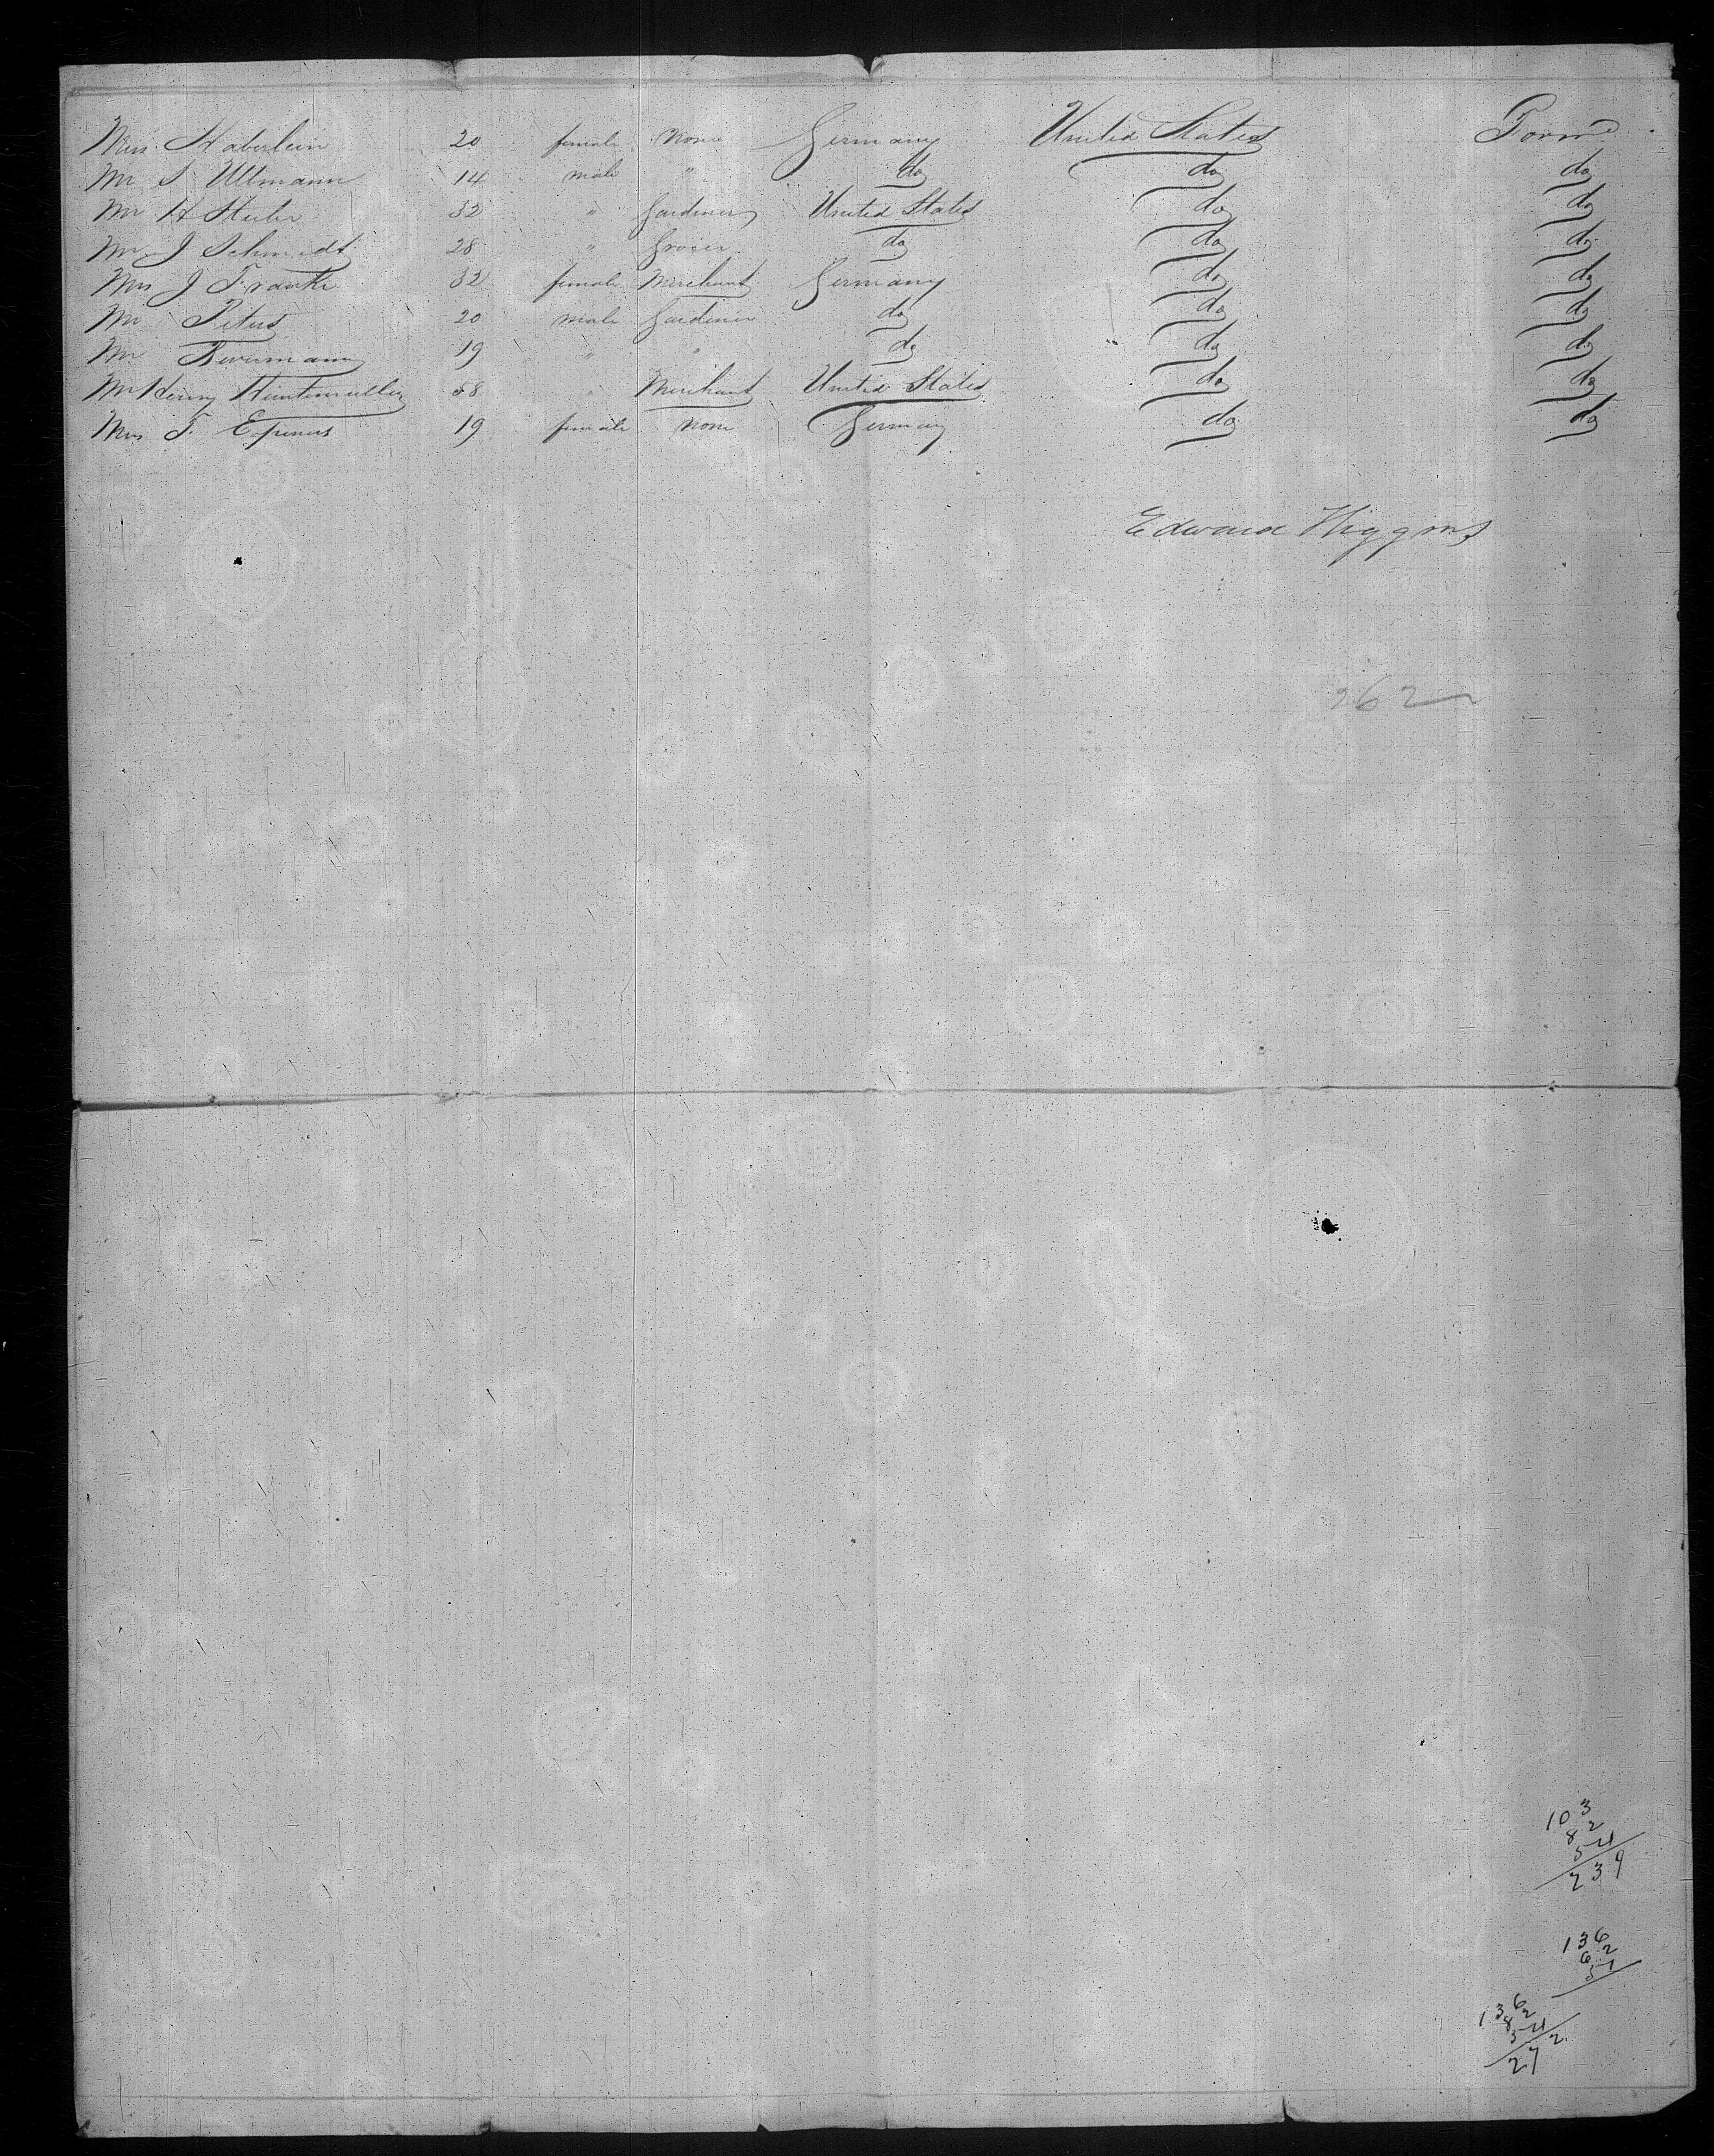 Haberlein 20 female None Germany United States
Mr S Ullmann 14 male " do do do
Mr H 32 " Gardener United States do do
Mr J Schmidt 28 " Grocer do do do
Mrs J Franke 32 female Merchant Germany do do
Mr Peters 20 male Gardener do do do
Mr 19 " " do do do
Mr Henry 58 " Merchant United States do do
Mrs F. 19 female None Germany do do
Edward Higgins
262
103
82
54
239
136
62
51
136
82
54
272